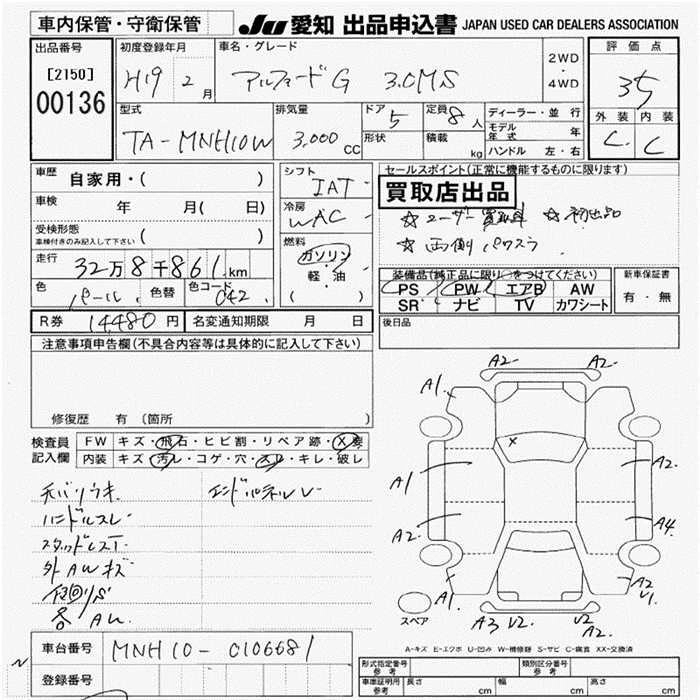 車内保管・守衛保管 JU 愛知 出品申込書 JAPAN USED CAR DEALERS ASSOCIATION
出品番号 初度登録年月 車名・グレード 評価点
[2150] H19 2月 アルファードG 3.0MS 2WD・4WD 35
00136
型式 排気量 ドア 5 定員 8人 ディーラー・並行 外装 内装
TA-MNH10W 3,000 CC 形状 積載 kg モデル年式 年 C C
ハンドル 左・右
車歴 自家用・( ) シフト IAT セールスポイント(正常に機能するものに限ります)
買取店出品
車検 年 月( 日) 冷房 WAC ☆ユーザー買取車 ☆初出品
受検形態 車検付きのみ記入して下さい ( ) ☆両側パワスラ
走行 32万8千861km 燃料 ガソリン・軽・油 ( )
装備品(純正品に限り○をつけてください) 新車保証書
色 パール 色替 色コード 042 PS PW エアB AW 有・無
SR ナビ TV カワシート
R券 14480円 名変通知期限 月 日 後日品
注意事項申告欄(不具合内容等は具体的に記入して下さい)
修復歴 有 (箇所 )
検査員記入欄 FW キズ・飛石・ヒビ割・リペア跡・X要
内装 キズ・汚レ・コゲ・穴・スレ・キレ・破レ
A2 A2
A1
A1 X A2
A2 A4
A1 A2 U1
スペア A3 U2 U2 A2
ハンドルスレ
外AWキズ
A-キズ E-エクボ U-凹み W-補修跡 S-サビ C-腐食 XX-交換済
車台番号 MNH10-0106681
登録番号
形式指定番号 参考 類別区分番号 参考
車庫証明用 参考 長さ cm 幅 cm 高さ cm